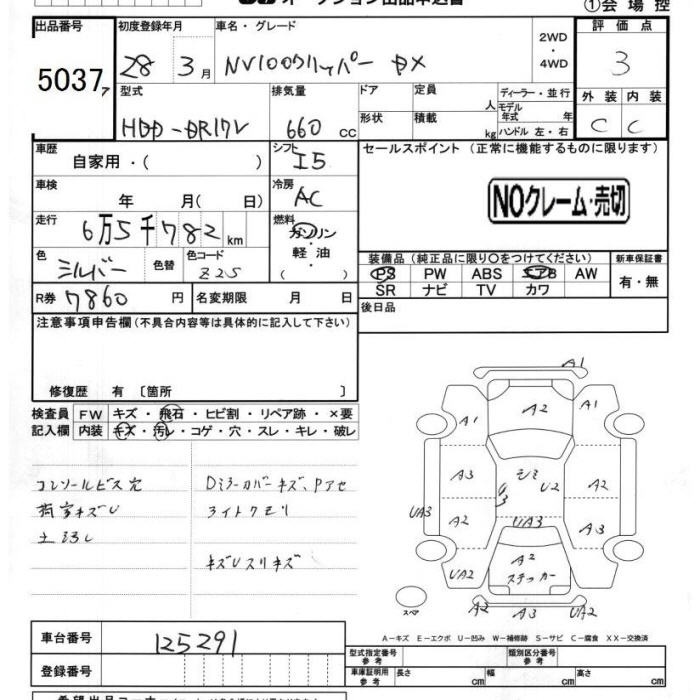 オークション出品申込書
①会場控
出品番号 5037ァ
初度登録年月 28 3月
車名・グレード NV100クリッパー DX
2WD・4WD
評価点 3
型式 HBD-DR17V
排気量 660 cc
ドア
形状
定員 人
積載 kg
ディーラー・並行
モデル年式 年
ハンドル 左・右
外装 内装
C C
車歴 自家用・( )
シフト I5
セールスポイント (正常に機能するものに限ります)
NOクレーム・売切
車検 年 月( 日)
冷房 AC
走行 6万5千782km
燃料 ガソリン・軽油・( )
色 シルバー
色替
色コード Z2S
装備品 (純正品に限り○をつけてください)
新車保証書
PS PW ABS エアB AW
有・無
SR ナビ TV カワ
R券 7860円
名変期限 月 日
後日品
注意事項申告欄(不具合内容等は具体的に記入して下さい)
修復歴 有 〔箇所 〕
検査員記入欄
FW キズ・飛石・ヒビ割・リペア跡・×要
内装 キズ・汚レ・コゲ・穴・スレ・キレ・破レ
コンソールビス穴
Dミラーカバーキズ、Pアセ
荷室キズU
ライトクモリ
キズUスリキズ
A1
A1 A2 A1
A3 シミ U2 A2
UA3 A2 UA3 A3
UA2 A2 ステッカー UA2
スペア
A2 A3 UA2
A−キズ E−エクボ U−凹み W−補修跡 S−サビ C−腐食 XX−交換済
車台番号 125291
型式指定番号 参考
類別区分番号 参考
登録番号
車庫証明用 参考 長さ cm 幅 cm 高さ cm